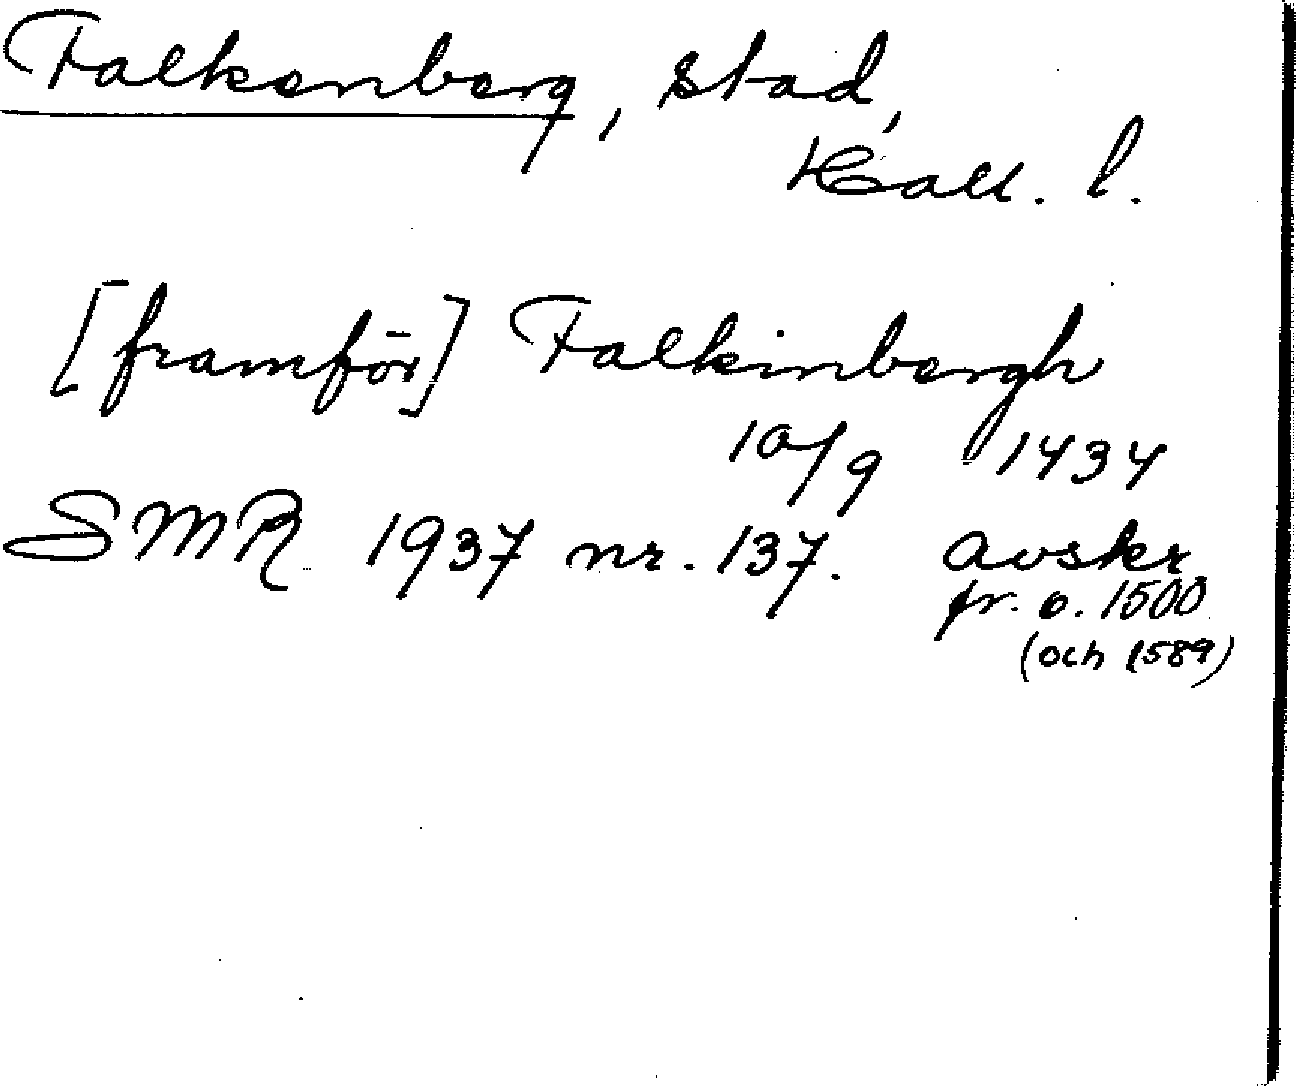 Falkenberg, stad,
Hall. l.
[framför] Falkinbergh
10/9 1434
SMR 1937 nr. 137. avskr
fr. o. 1500
(och 1589)